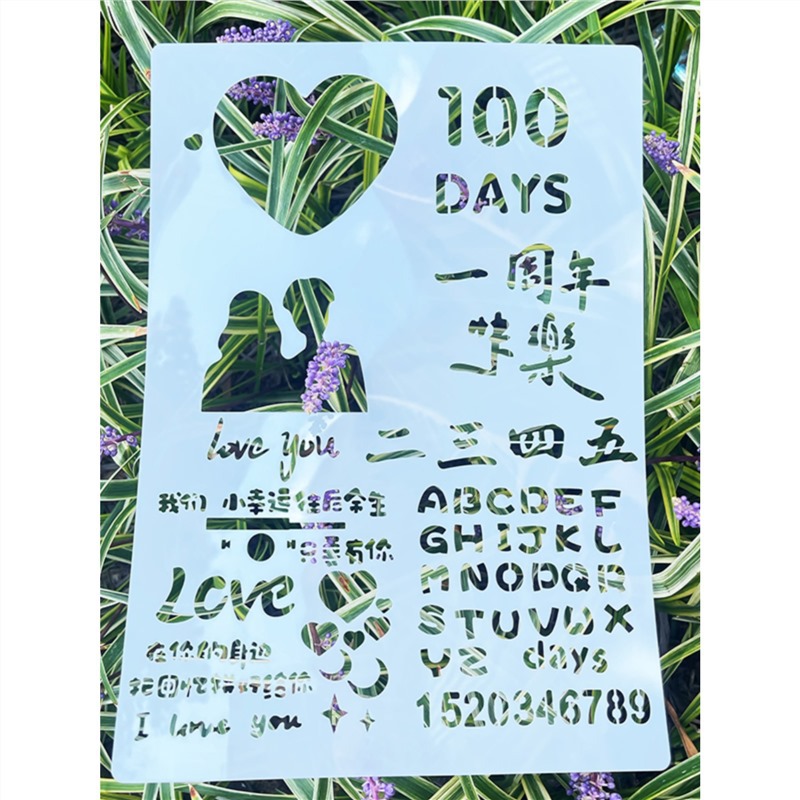 100
DAYS
一周年
快樂
love you
二 三 四 五
我们 小幸运 往后余生
" " 只要有你
LOVE
在你的身边
把回忆拼好给你
I love you
ABCDEF
GHIJKL
MNOPQR
STUVWX
YZ days
1520346789